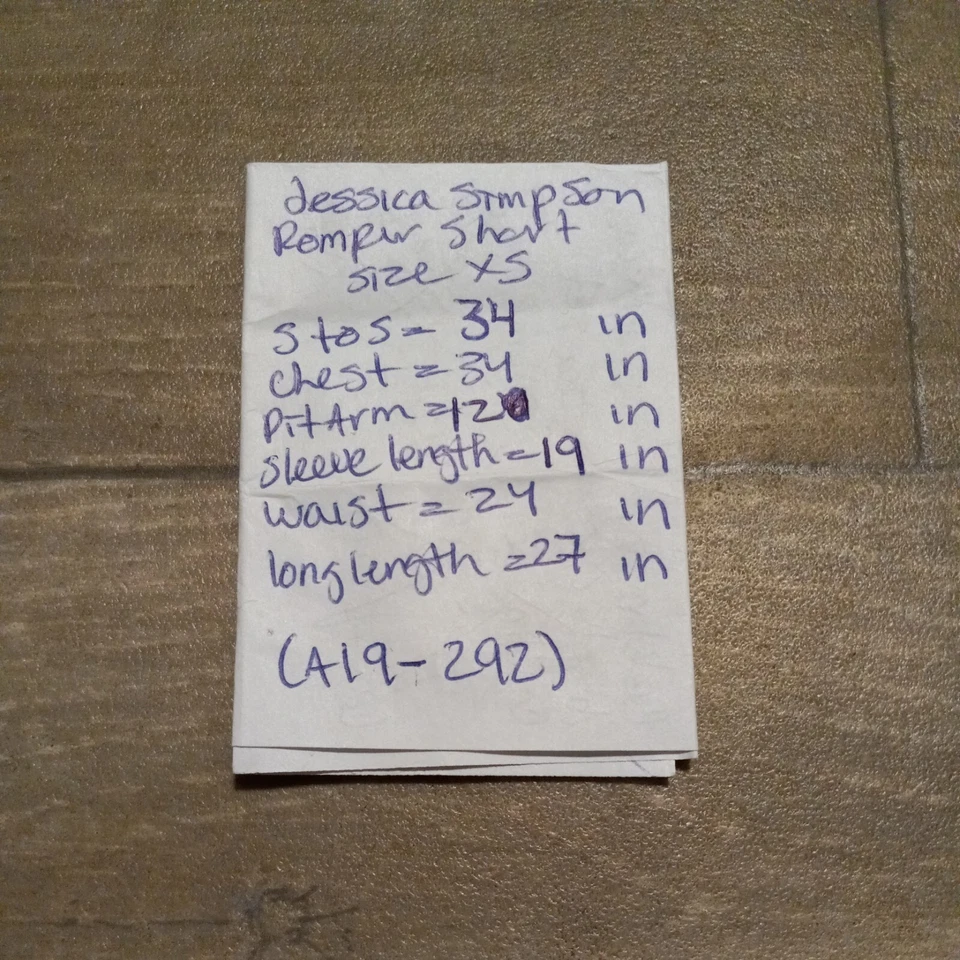 Jessica Simpson
Romper Short
size XS
S to S = 34 in
chest = 34 in
Pit Arm = 12 in
sleeve length = 19 in
waist = 24 in
long length = 27 in
(A19-292)